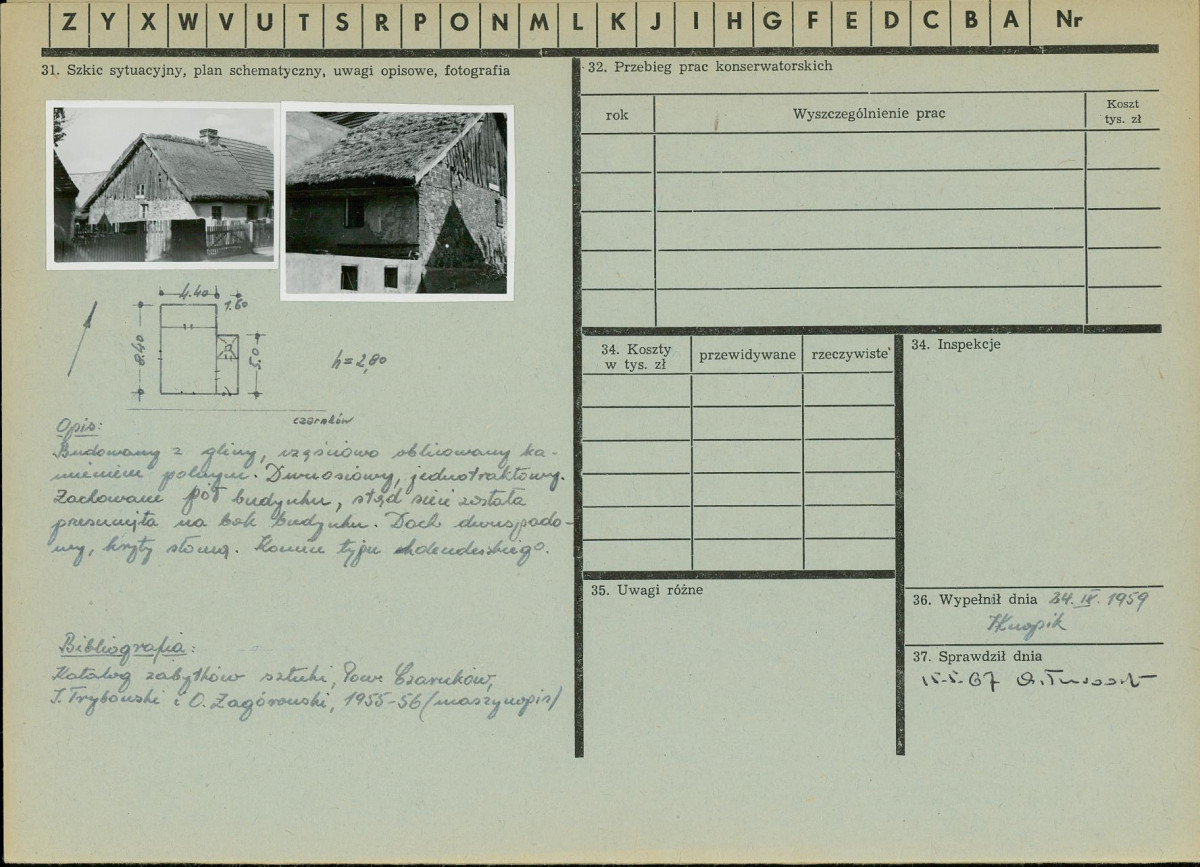 Z Y X W V U T S R P O N M L K J I H G F E D C B A Nr
31. Szkic sytuacyjny, plan schematyczny, uwagi opisowe, fotografia
4.40
1.60
8.40
5.0
h = 2,80
czarnków
Opis:
Budowany z gliny, częściowo oblicowany ka-
mieniem polnym. Dwuosiowy, jednotraktowy.
Zachowane pół budynku, stąd sień została
przesunięta na bok budynku. Dach dwuspado-
wy, kryty słomą. Komin typu holenderskiego.
Bibliografia:
Katalog zabytków sztuki, Pow. Czarnków,
T. Trybowski i O. Zagórowski, 1955-56 (maszynopis)
32. Przebieg prac konserwatorskich
rok
Wyszczególnienie prac
Koszt
tys. zł
34. Koszty
w tys. zł
przewidywane
rzeczywiste
35. Uwagi różne
34. Inspekcje
36. Wypełnił dnia 24. IX. 1959
37. Sprawdził dnia
15.5.67